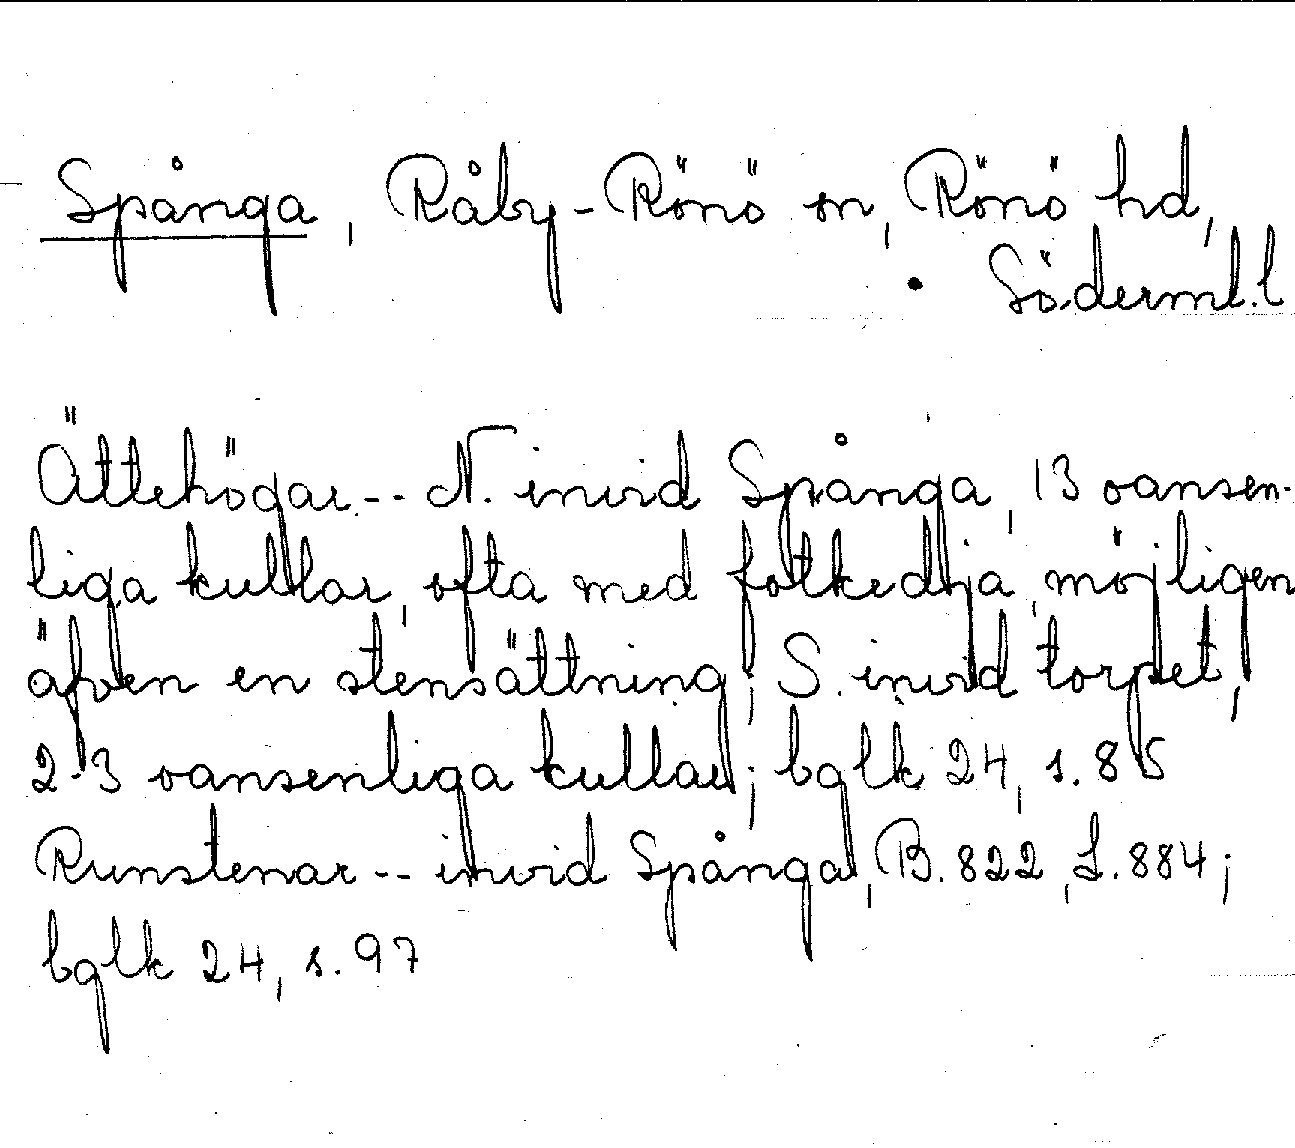 Spånga, Råby-Rönö sn, Rönö hd,
Söderml. l
Ättehögar -- N. invid Spånga, 13 oansen-
liga kullar, ofta med fotkedja, möjligen
äfven en stensättning; S. invid torpet,
2-3 oansenliga kullar; bglk 24, s. 85
Runstenar -- invid Spånga, B. 822, L. 884;
bglk 24, s. 97